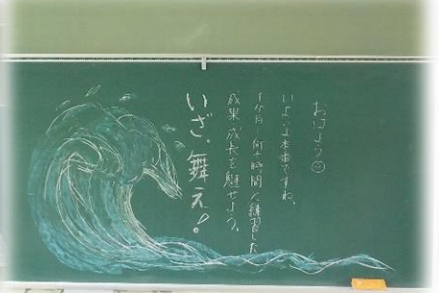 おはよう☺
いよいよ本番ですね。
1ヶ月、何十時間と練習した
成果、成長を魅せよう。
いざ、舞え!